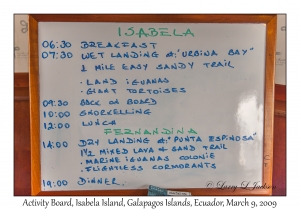 ISABELA
06:30 BREAKFAST
07:30 WET LANDING at "URBINA BAY"
1 MILE EASY SANDY TRAIL
· LAND IGUANAS
· GIANT TORTOISES
09:30 BACK ON BOARD
10:00 SNORKELLING
12:00 LUNCH
FERNANDINA
14:00 DRY LANDING at "PUNTA ESPINOSA"
1½ MIXED LAVA & SAND TRAIL
- MARINE IGUANAS COLONIE
- FLIGHTLESS CORMORANTS
19:00 DINNER
© Larry L Jackson
Activity Board, Isabela Island, Galapagos Islands, Ecuador, March 9, 2009